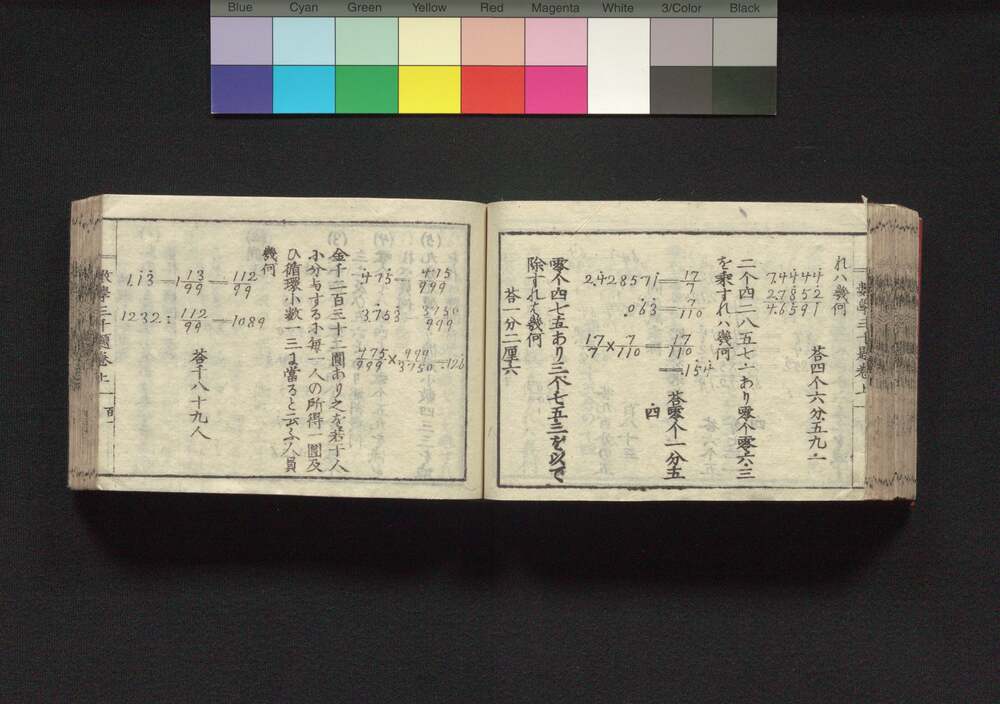 Blue Cyan Green Yellow Red Magenta White 3/Color Black
れハ幾何
7.4444
2.7852
4.6591
答四个六分五九一
二个四二八五七一あり零个零六三
を乘すれハ幾何
2.428571=17/7
.063=7/110
17/7×7/110=17/110
=.154
答零个一分五
四
零个四七五あり三个七五三を以て
除すれハ幾何
答一分二厘六
.475=475/999
3.753=3750/999
475/999×999/3750=.126
金千二百三十二圓あり之を若干人
に分与するに毎一人の所得一圓及
ひ循環小数一三に當ると云ふ人員
幾何
1.13=1 13/99=112/99
1232:112/99=1089
答千八十九人
數學三千題卷上